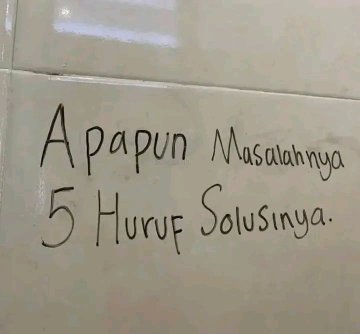 Apapun Masalahnya
5 Huruf Solusinya.